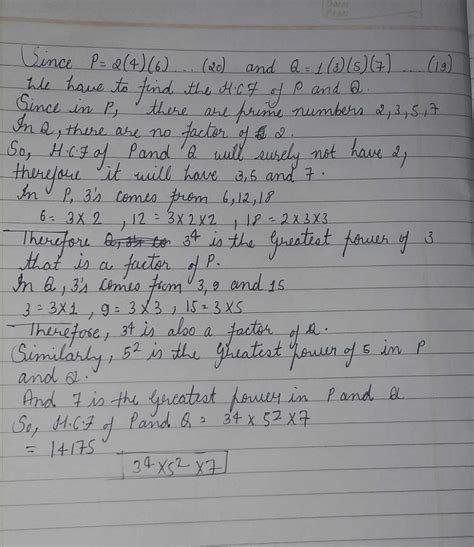 Since P = 2(4)(6) ... (20) and Q = 1(3)(5)(7) ... (19)
We have to find the H.C.F of P and Q.
Since in P, there are prime numbers 2,3,5,7
In Q, there are no factor of 2.
So, H.C.F of P and Q will surely not have 2,
therefore it will have 3,5 and 7.
In P, 3's comes from 6,12,18
6 = 3×2 , 12 = 3×2×2 , 18 = 2×3×3
Therefore 3⁴ is the Greatest power of 3
that is a factor of P.
In Q, 3's comes from 3,9 and 15
3 = 3×1 , 9 = 3×3 , 15 = 3×5
Therefore, 3⁴ is also a factor of Q.
Similarly, 5² is the Greatest power of 5 in P
and Q.
And 7 is the Greatest power in P and Q
So, H.C.F of P and Q = 3⁴ × 5² × 7
= 14175
3⁴ × 5² × 7